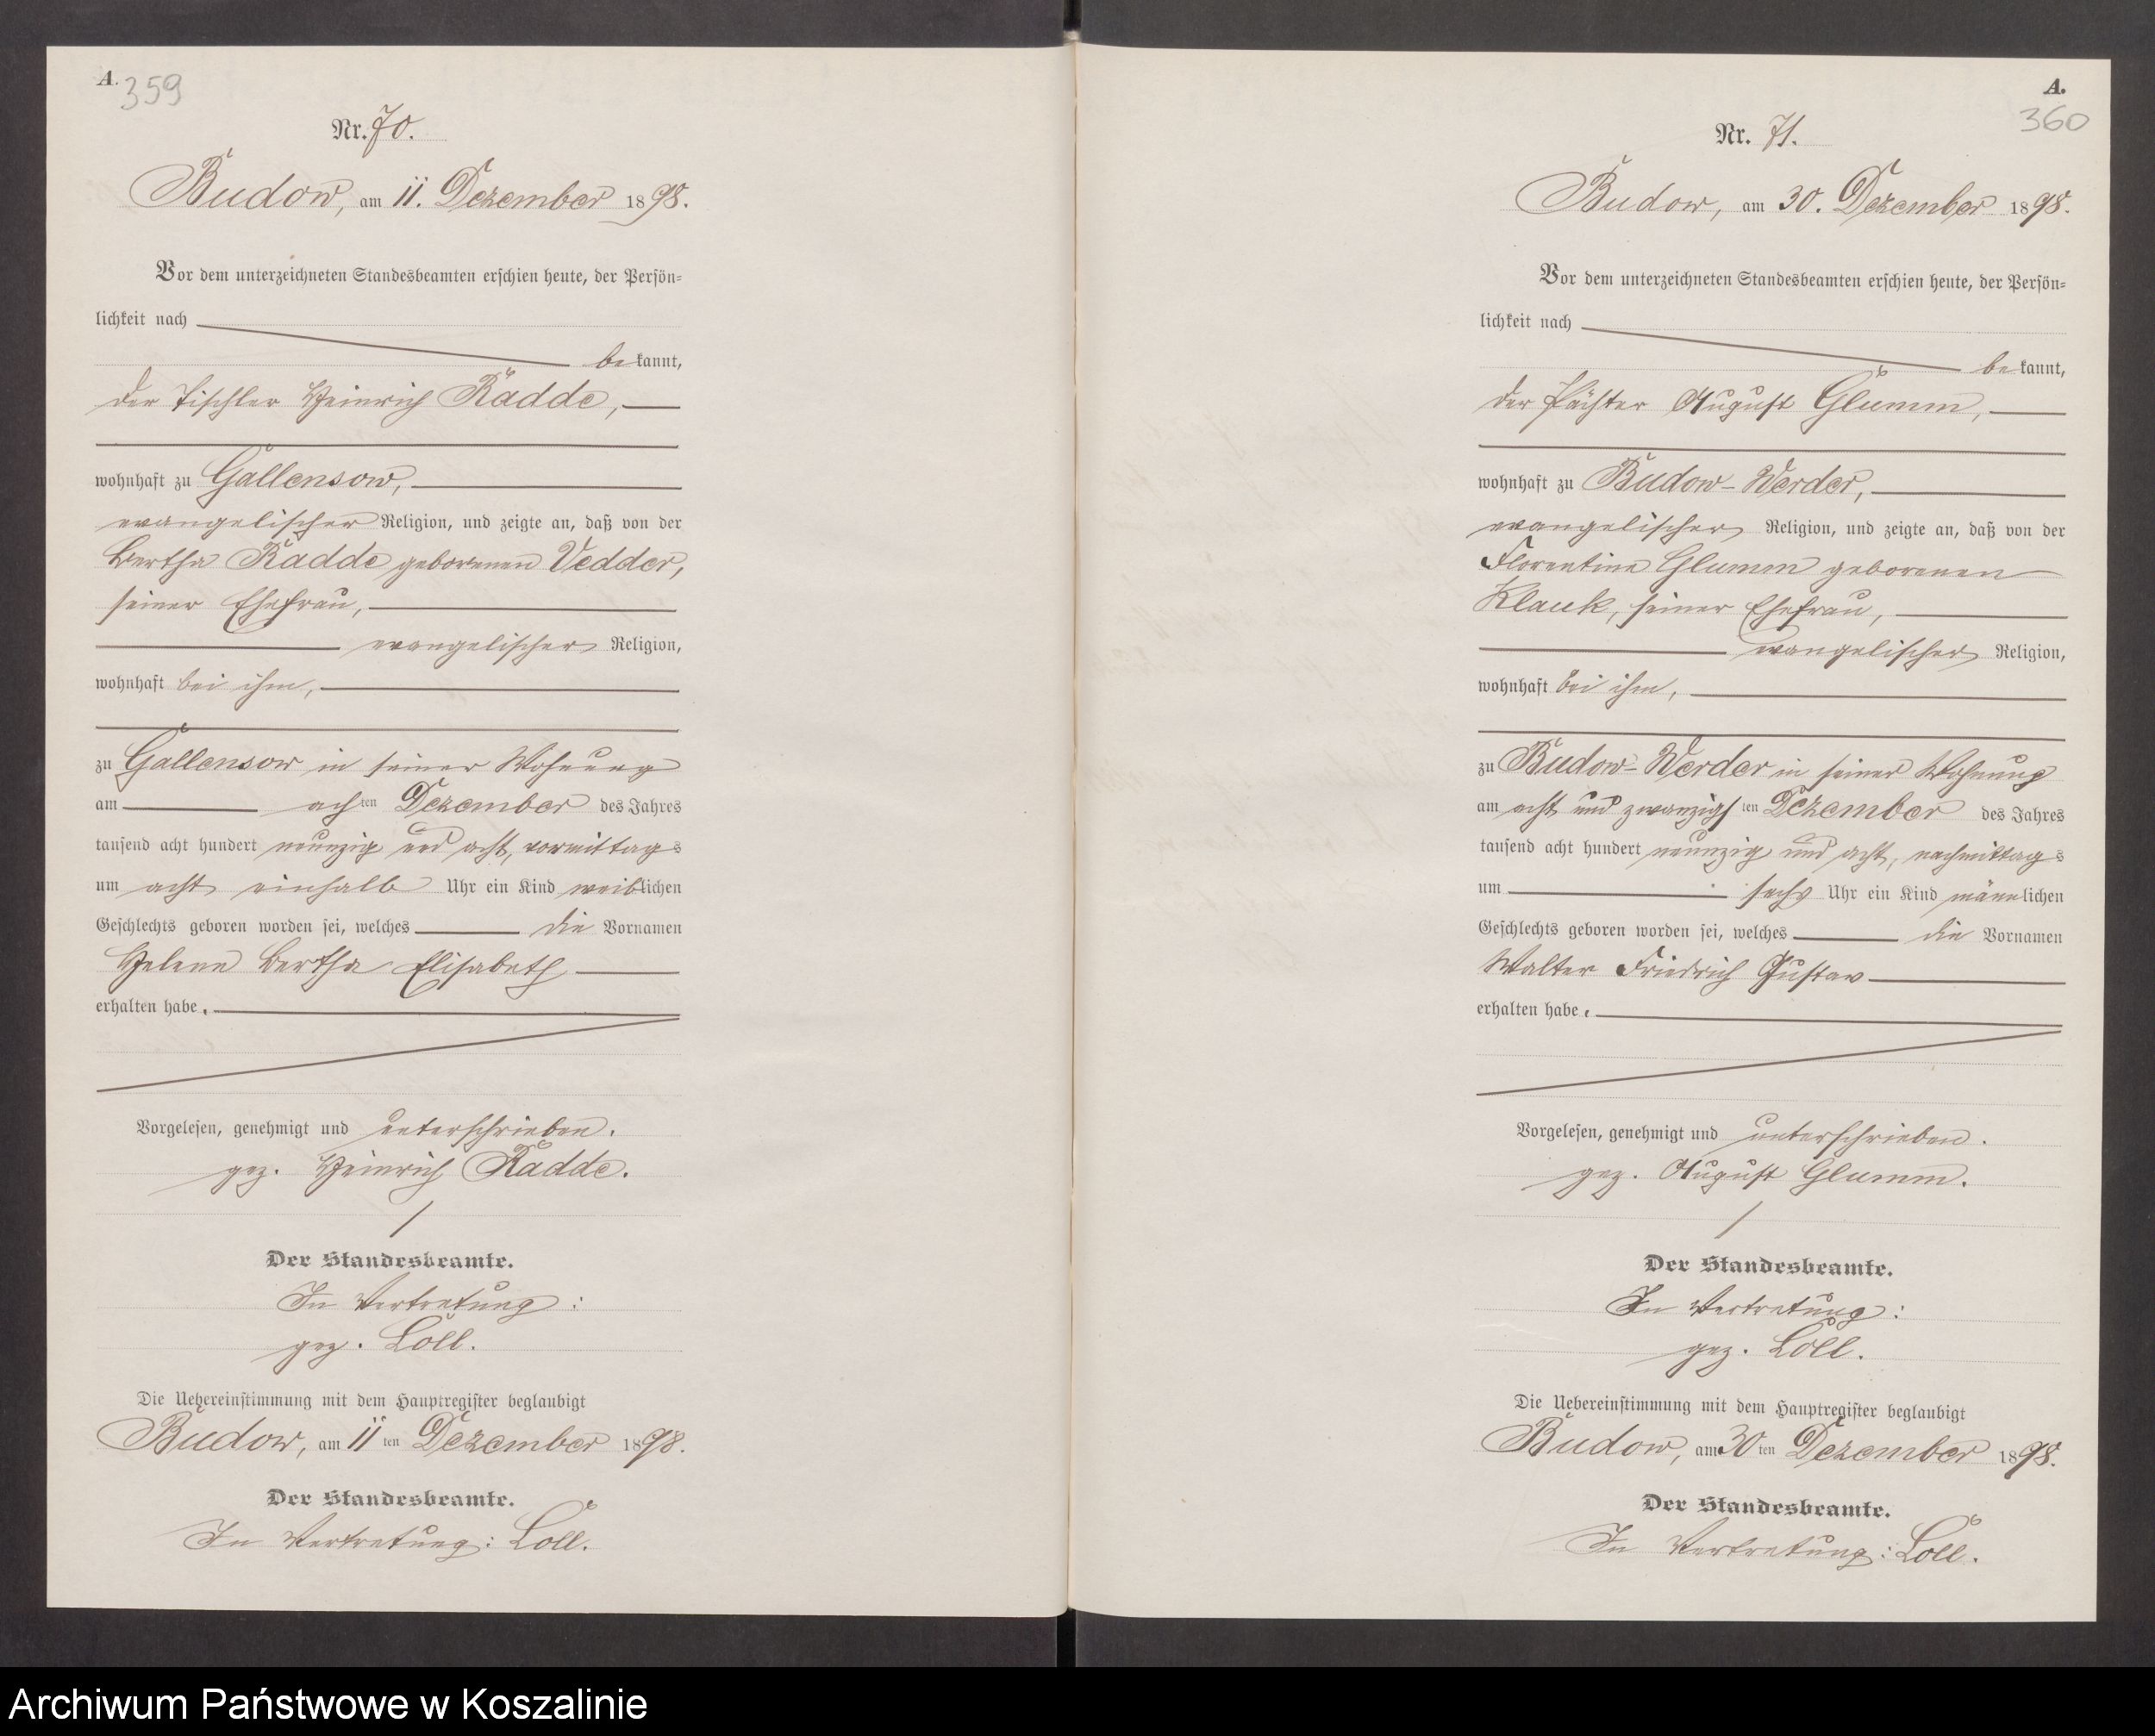 A.
359
Nr. 70.
Budow, am 11. Dezember 1898.
Vor dem unterzeichneten Standesbeamten erschien heute, der Persön=
lichkeit nach
bekannt,
der Tischler Heinrich Radde,
wohnhaft zu Gallensow,
evangelischer Religion, und zeigte an, daß von der
Bertha Radde geborenen Vedder,
seiner Ehefrau,
evangelischer Religion,
wohnhaft bei ihm,
zu Gallensow in seiner Wohnung
am achten Dezember des Jahres
tausend acht hundert neunzig und acht, vormittags
um acht einhalb Uhr ein Kind weiblichen
Geschlechts geboren worden sei, welches die Vornamen
Helene Bertha Elisabeth
erhalten habe.
Vorgelesen, genehmigt und unterschrieben.
gez. Heinrich Radde.
Der Standesbeamte.
In Vertretung:
gez. Löll.
Die Uebereinstimmung mit dem Hauptregister beglaubigt
Budow, am 11ten Dezember 1898.
Der Standesbeamte.
In Vertretung: Löll.
A.
360
Nr. 71.
Budow, am 30. Dezember 1898.
Vor dem unterzeichneten Standesbeamten erschien heute, der Persön=
lichkeit nach
bekannt,
der Pächter August Glumm,
wohnhaft zu Budow-Werder,
evangelischer Religion, und zeigte an, daß von der
Florentine Glumm geborenen
Klauk, seiner Ehefrau,
evangelischer Religion,
wohnhaft bei ihm,
zu Budow-Werder in seiner Wohnung
am acht und zwanzigsten Dezember des Jahres
tausend acht hundert neunzig und acht, nachmittags
um sechs Uhr ein Kind männlichen
Geschlechts geboren worden sei, welches die Vornamen
Walter Friedrich Gustav
erhalten habe.
Vorgelesen, genehmigt und unterschrieben.
gez. August Glumm.
Der Standesbeamte.
In Vertretung:
gez. Löll.
Die Uebereinstimmung mit dem Hauptregister beglaubigt
Budow, am 30ten Dezember 1898.
Der Standesbeamte.
In Vertretung: Löll.
Archiwum Państwowe w Koszalinie